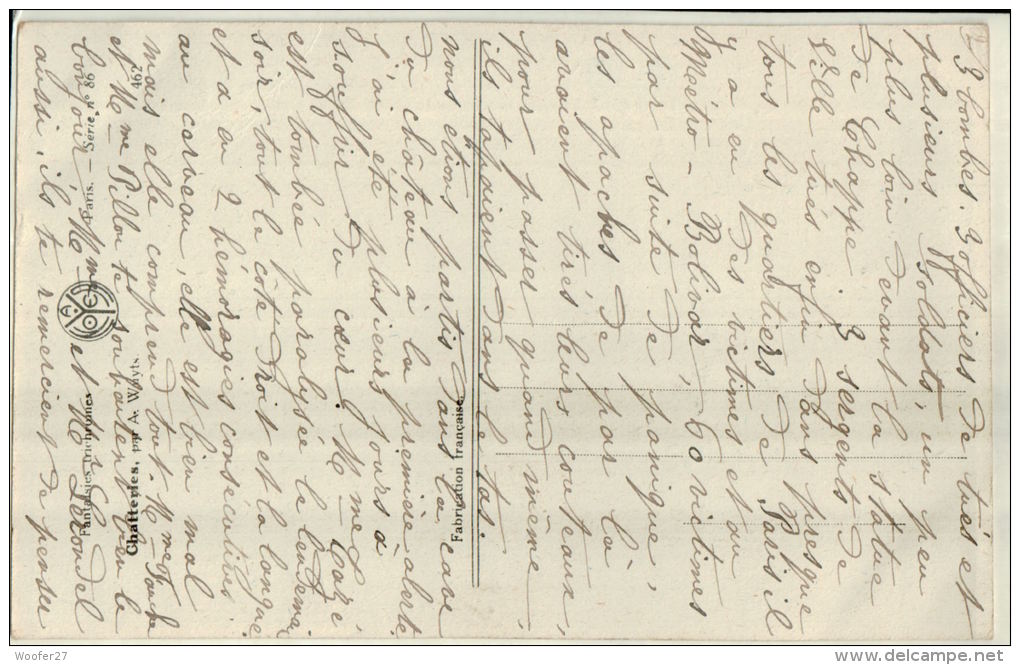 2
3 bombes. 3 officiers de tués et
plusieurs soldats, un peu
plus loin devant la statue
de Chappe. 3 sergents de
Ville tués enfin dans presque
tous les quartiers de Paris il
y a eu des victimes et au
Métro - Bolivar, 60 victimes
par suite de panique,
les apaches de par là
avaient tirés leurs couteaux,
pour passer quand même
ils tapaient dans le tas.
nous étions partis dans la cave
du château à la première alerte
j'ai été plusieurs jours à
souffrir du cœur. Mme
est tombée paralysée le lendemain
soir, tout le côté droit et la langue
et a eu 2 hémoragies consécutives
au cerveau, elle est bien mal
mais elle comprend tout. Mme
et Mme Pillon te souhaitent bien le
bonjour, M- Mme et Mr
aussi, ils te remercient de penser
Fabrication française
Chatteries, par A. Wuyts.
462
Fantaisies Trichromes
Paris. — Série n° 86
Woofer27
delcampe.net